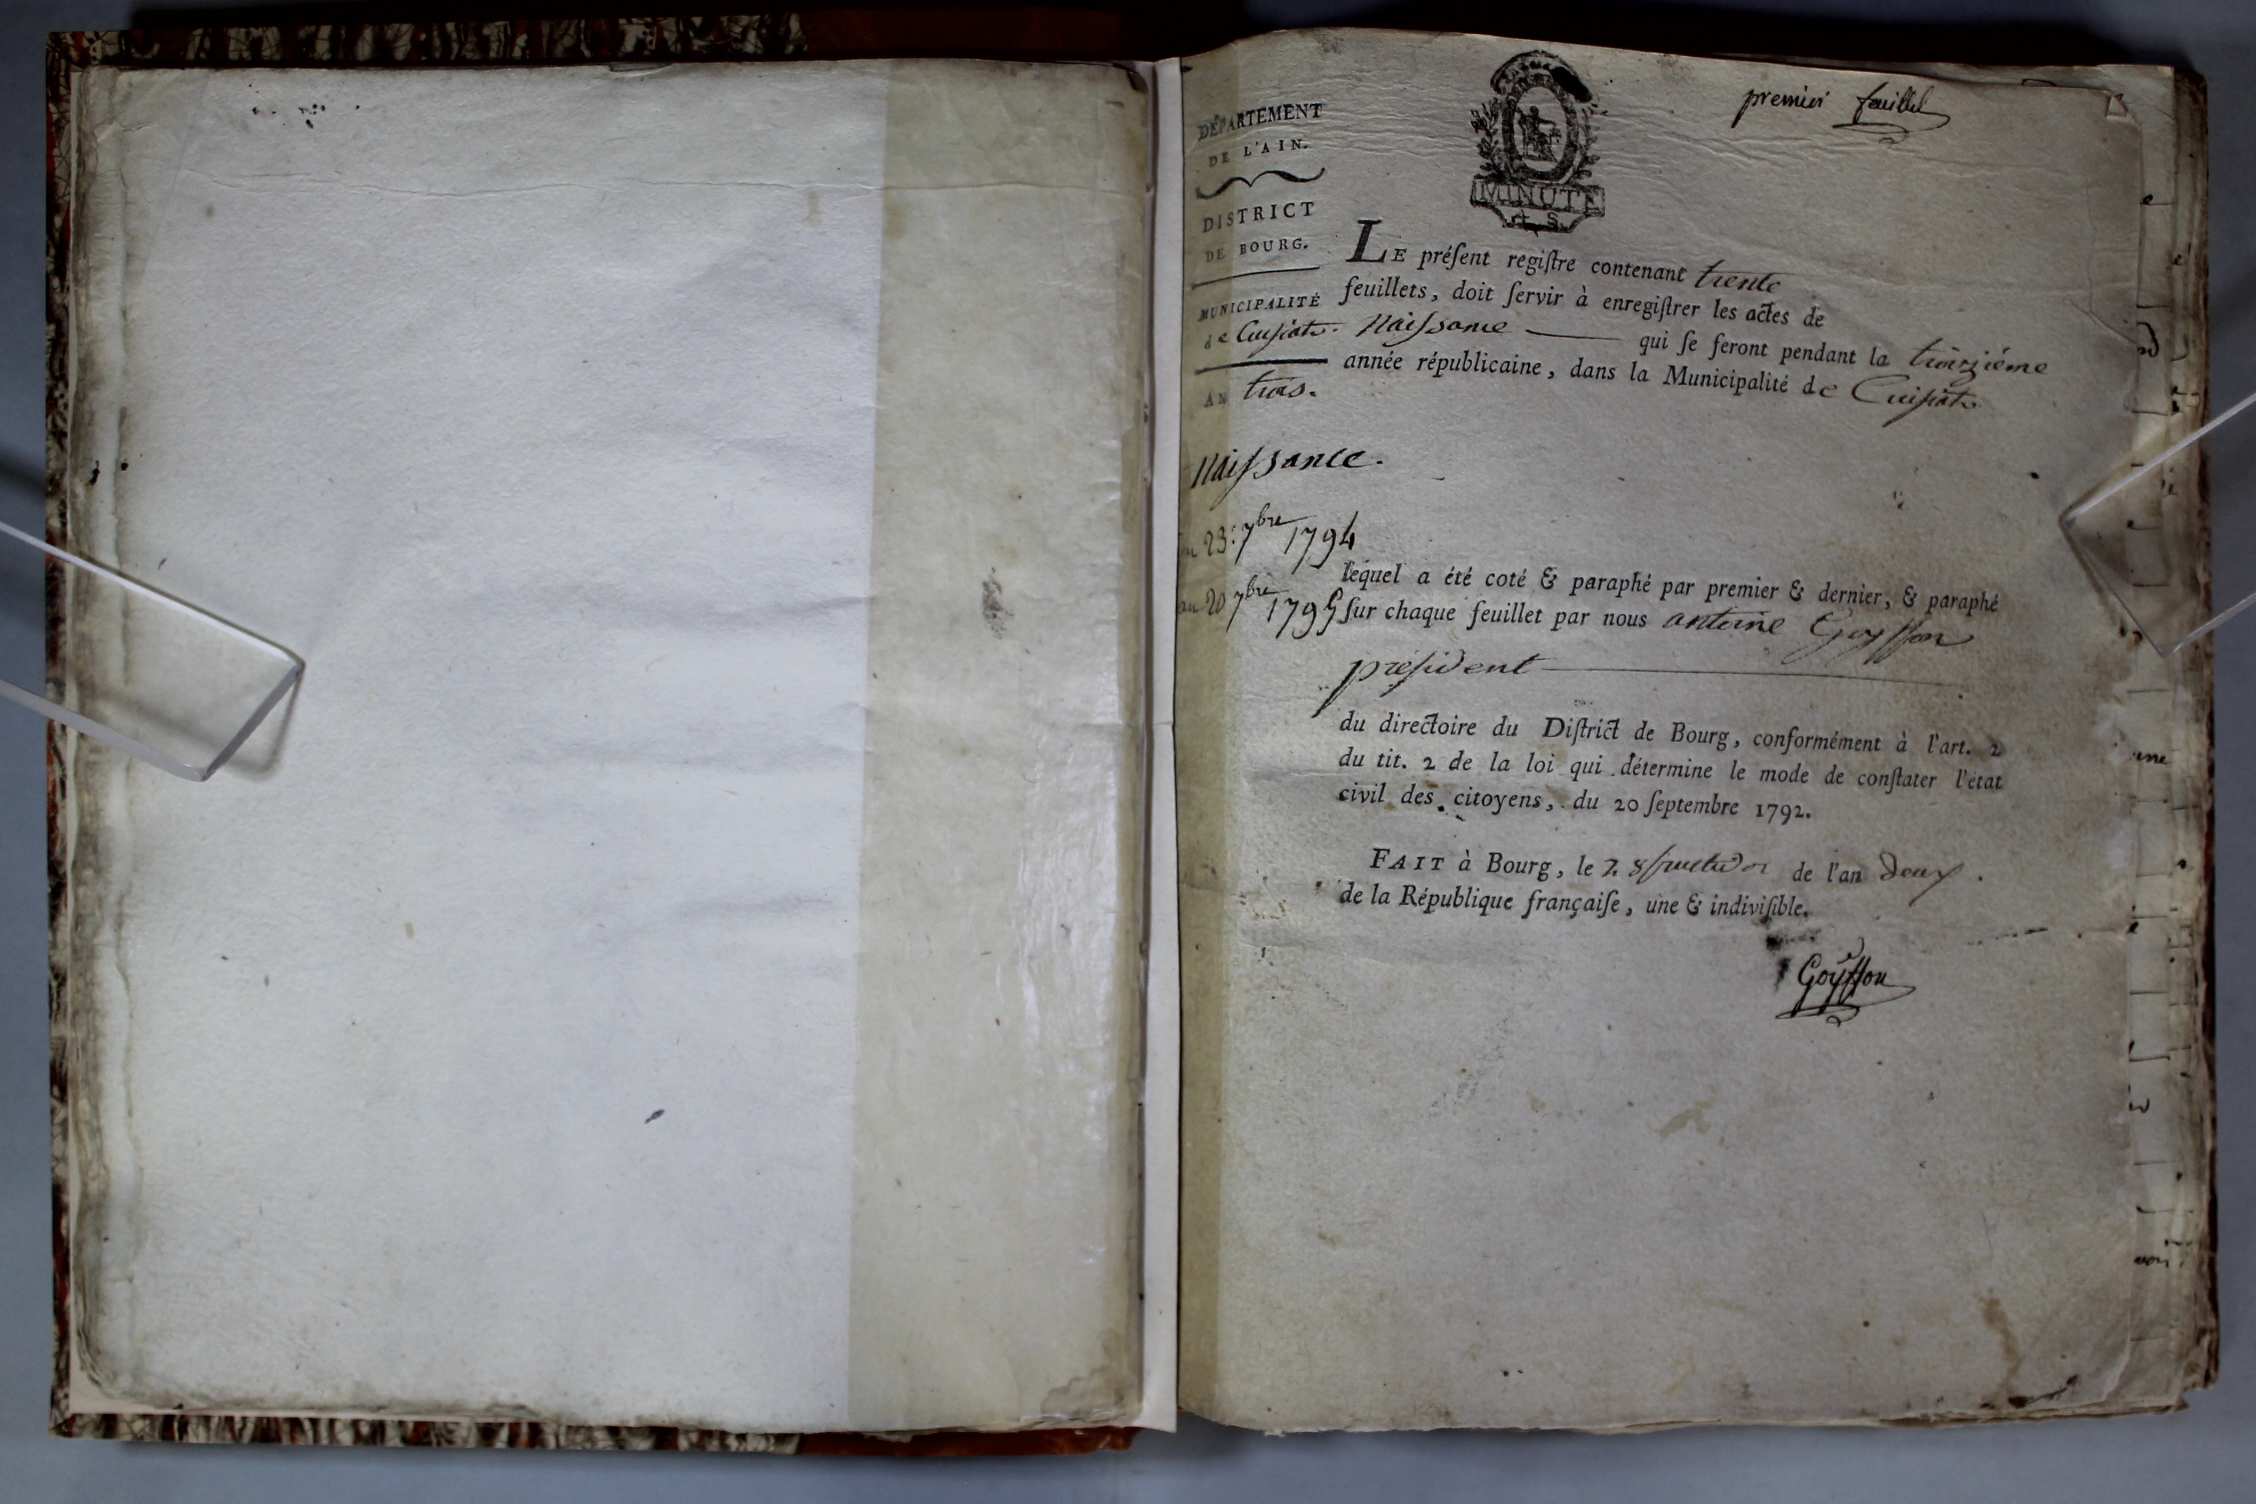 premier feuillet
MINUTE
4. S.
DÉPARTEMENT
DE L'AIN.
DISTRICT
DE BOURG.
MUNICIPALITÉ
de Cuisiat.
AN trois.
Naissance.
du 23: 7bre 1794
au 20 7bre 1795
LE préſent regiſtre contenant trente
feuillets, doit ſervir à enregiſtrer les actes de
Naissance qui ſe feront pendant la troisziéme
année républicaine, dans la Municipalité de Cuisiat
lequel a été coté & paraphé par premier & dernier, & paraphé
ſur chaque feuillet par nous antoine Goyffon
président
du directoire du Diſtrict de Bourg, conformément à l'art. 2
du tit. 2 de la loi qui détermine le mode de conſtater l'état
civil des citoyens, du 20 ſeptembre 1792.
FAIT à Bourg, le 28 fructidor de l'an deux.
de la République françaiſe, une & indiviſible.
Goyffon